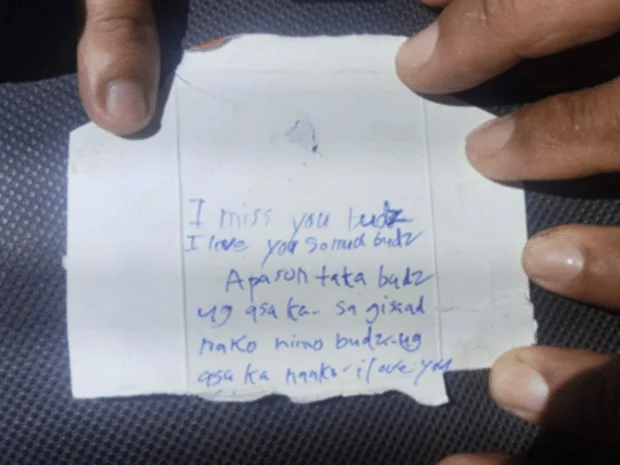 I miss you budz
I love you so much budz
Apason tata budz
ug asa ka sa gisaad
nako nimo budz-ug
asa ka naako i love you